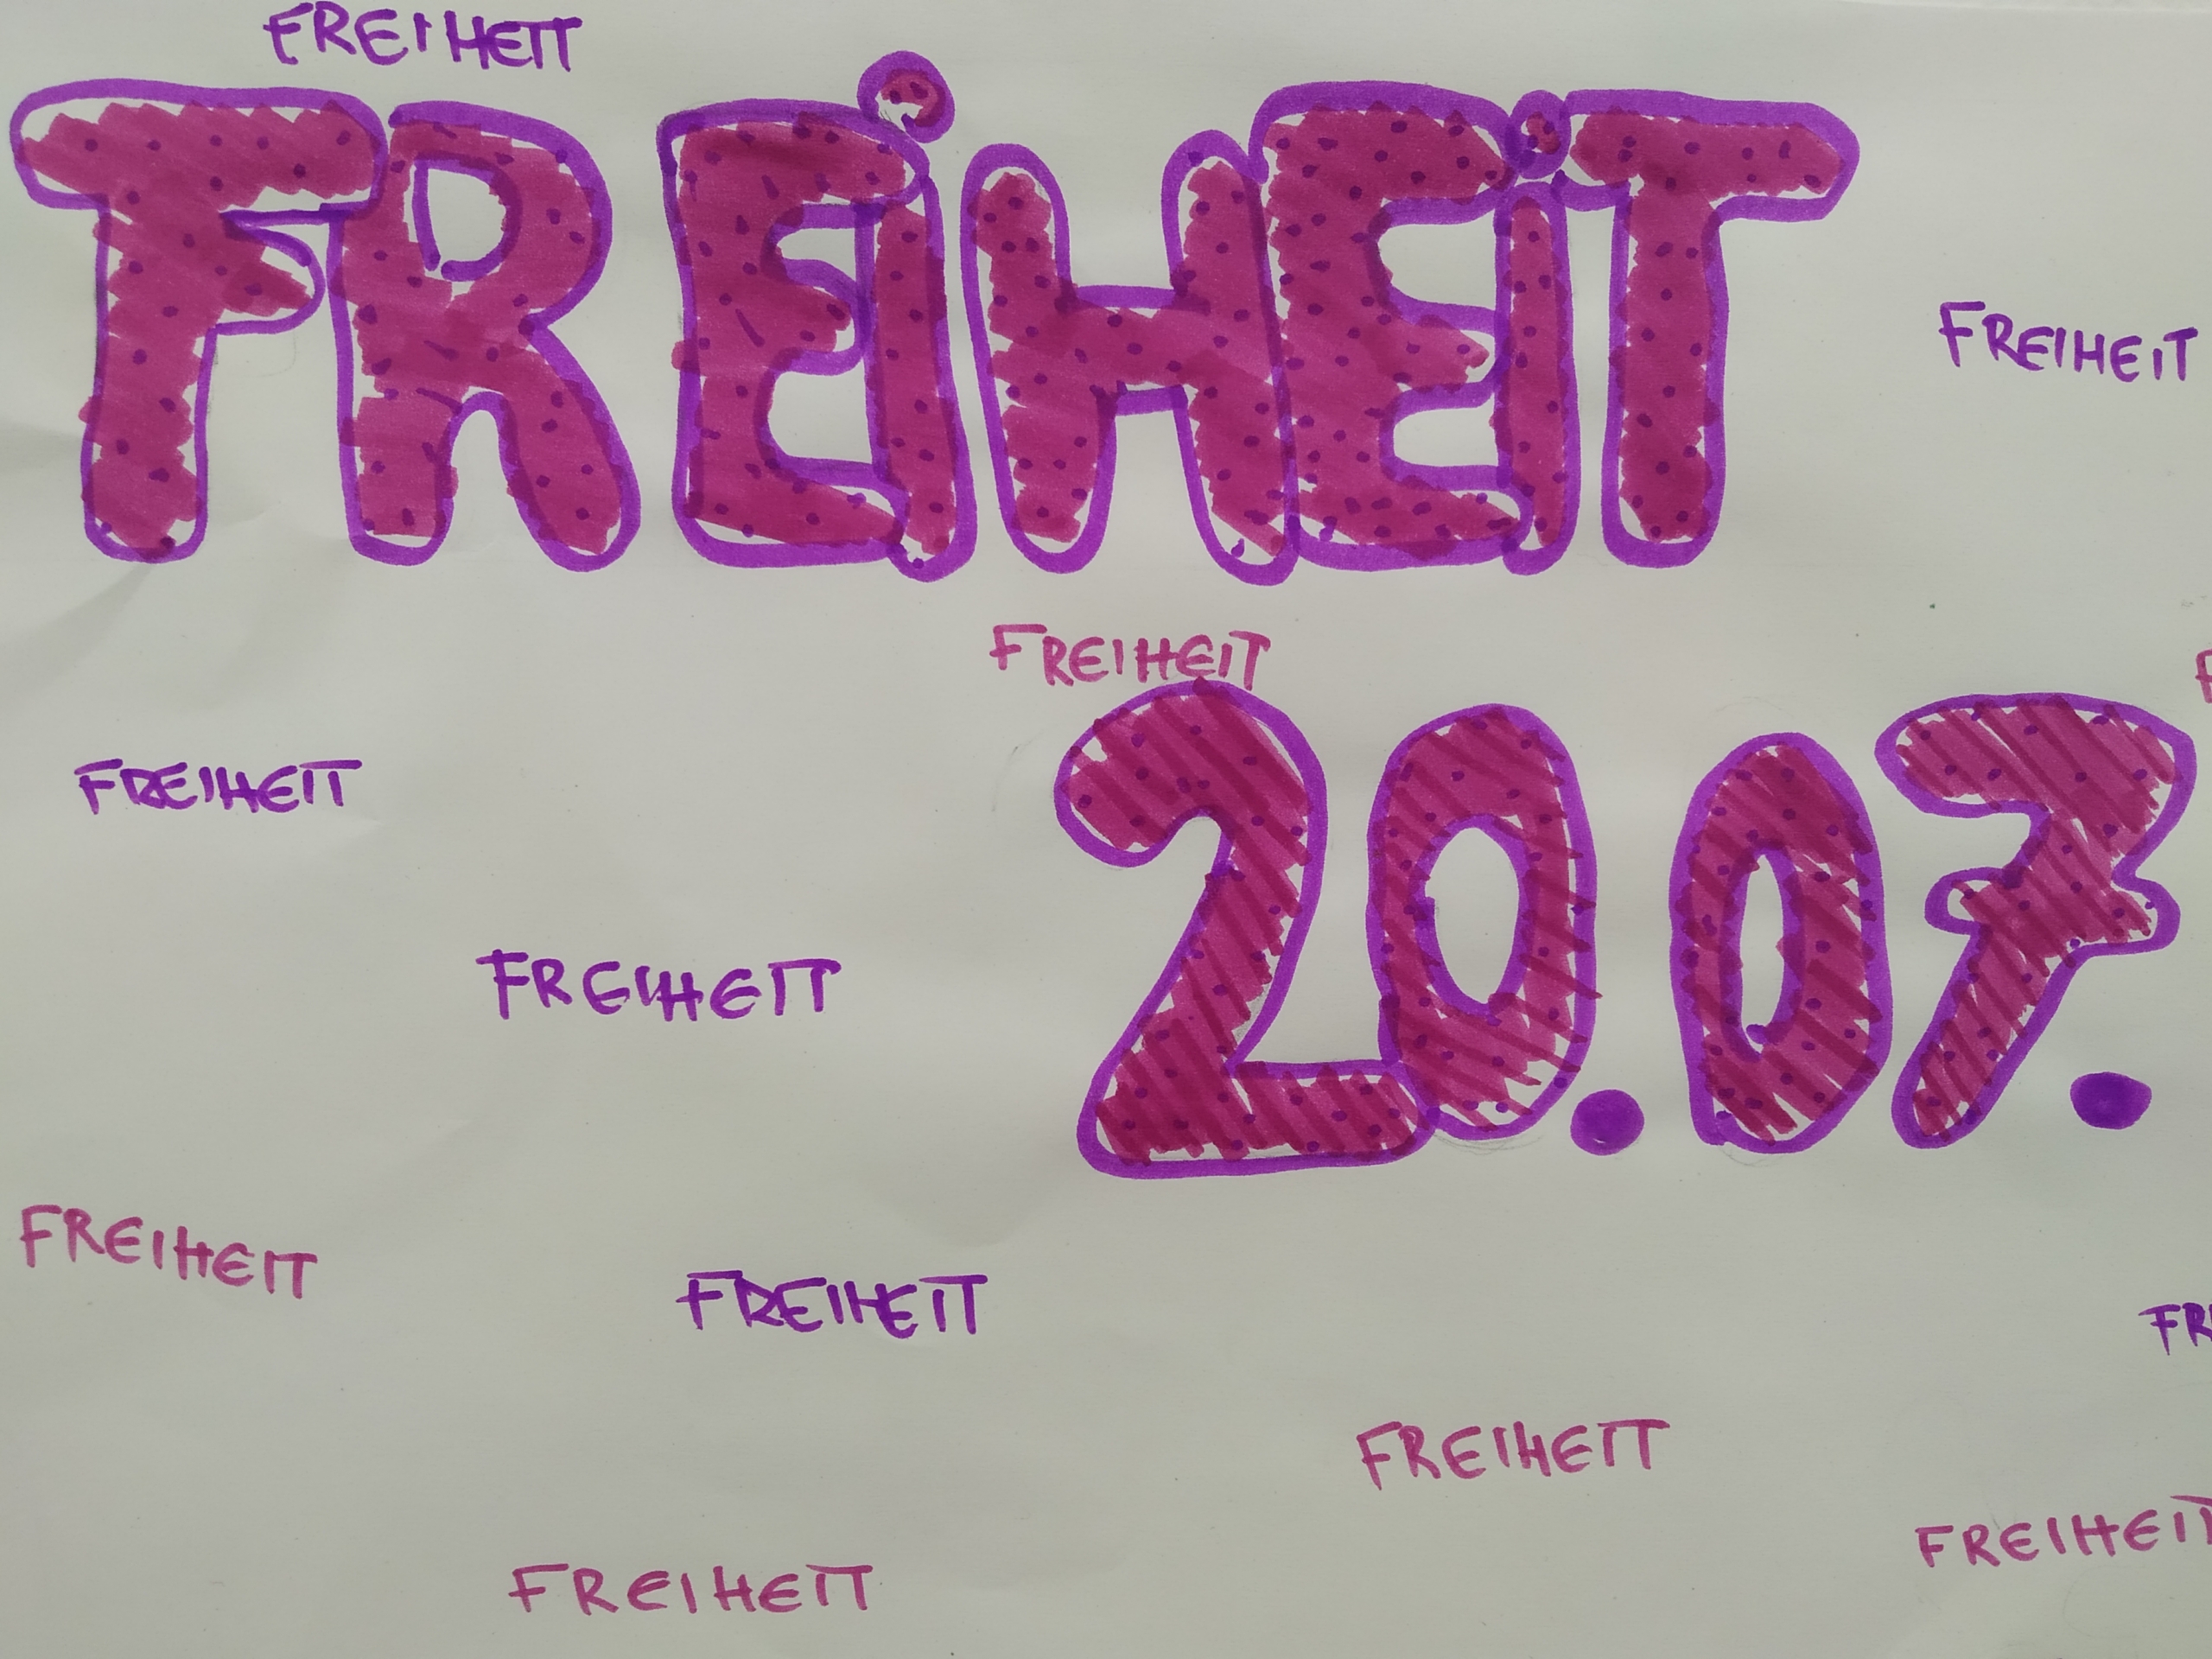 FREIHEIT
FREiHEiT
FREIHEIT
FREIHEIT
20.07.
FREIHEIT
FREIHEIT
FREIHEIT
FREIHEIT
FR
FREIHEIT
FREIHEIT
FREIHEIT